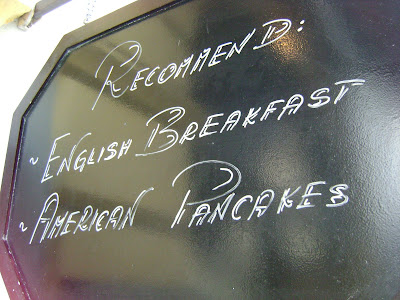 RECOMMEND:
~ ENGLISH BREAKFAST
~ AMERICAN PANCAKES